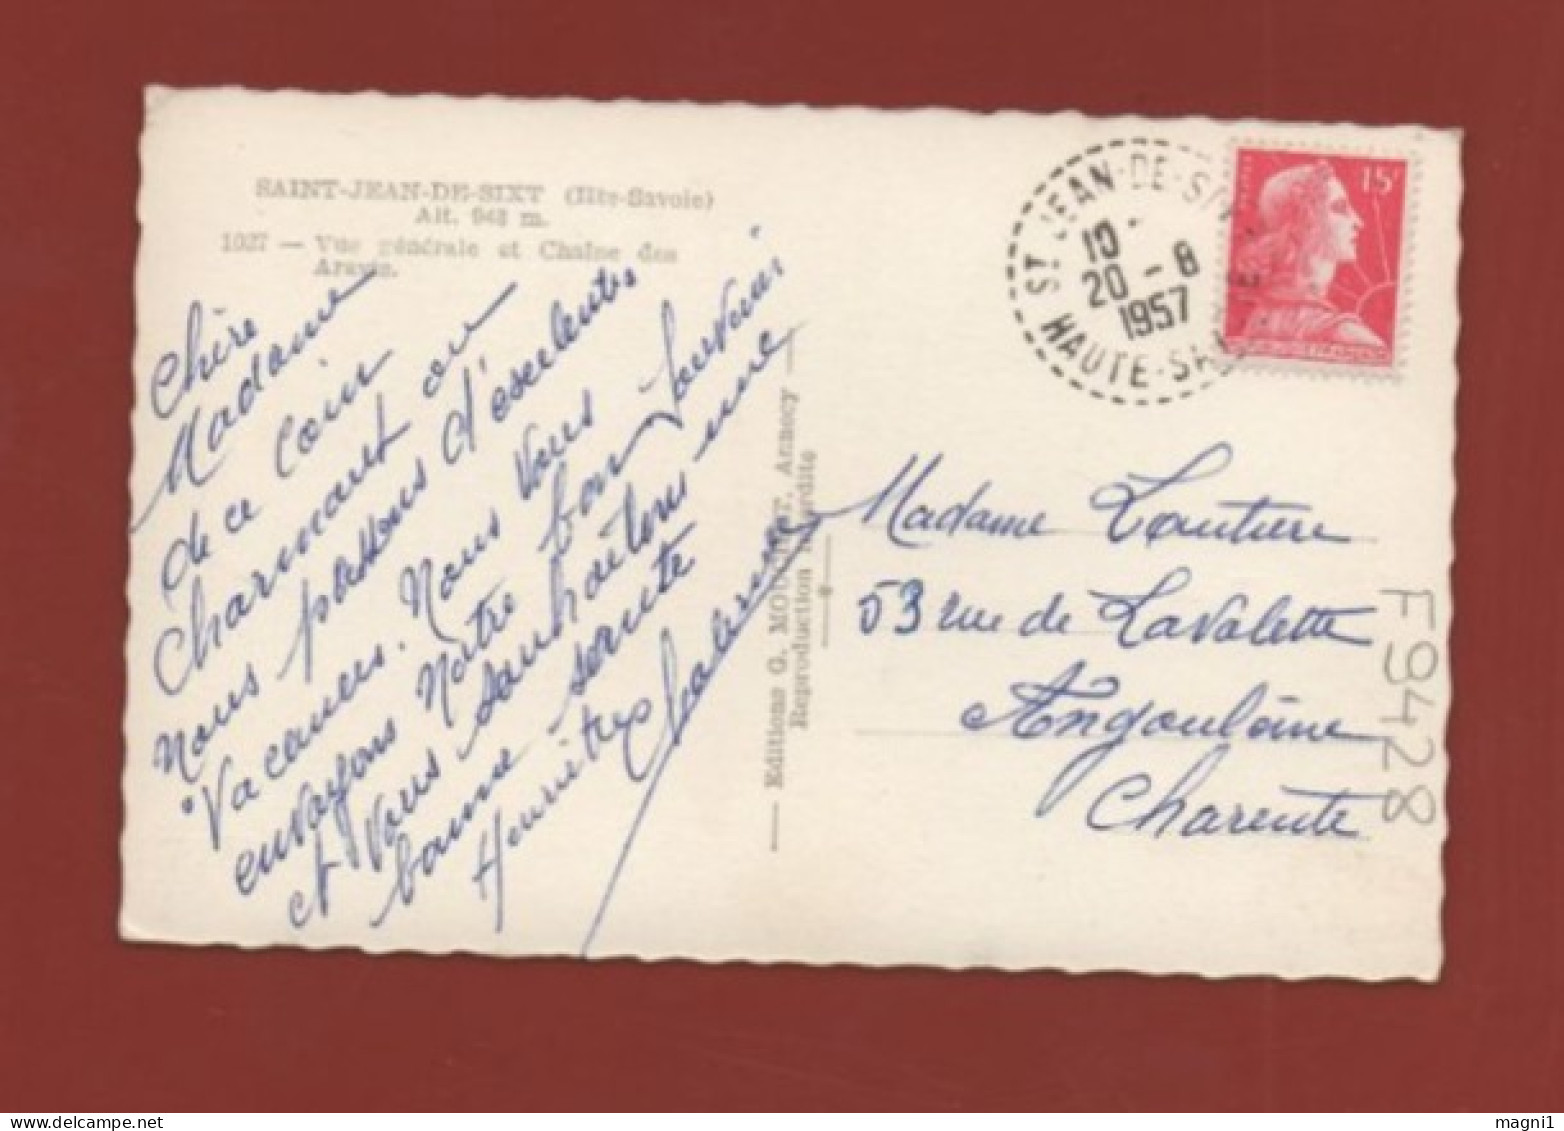 SAINT-JEAN-DE-SIXT (Hte-Savoie)
Alt. 948 m.
1027 — Vue générale et Chaîne des
Aravis.
Chère
Madame
de ce coin
Charmant ou
nous passons d'exelentes
Vacances. Nous vous
envoyons Notre bon souvenir
et vous souhaitons une
bonne santé
— Editions G. MOUCHET, Annecy —
Reproduction interdite
ST JEAN-DE-SIXT
10
20 - 8
1957
HAUTE-SAVOIE
15F
Madame Lautière
53 rue de Lavalette
Angoulême
Charente
F9428
magni1